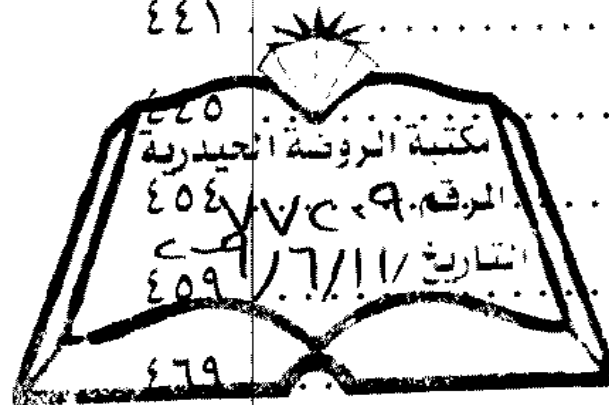 ٤٤١ . . . . . . . . . .
٤٤٥ . . . . . . . . . .
مكتبة الروضة الحيدرية
٤٥٤
الرقم
٤٥٩
التاريخ / ١١ / ٦
٤٦٩